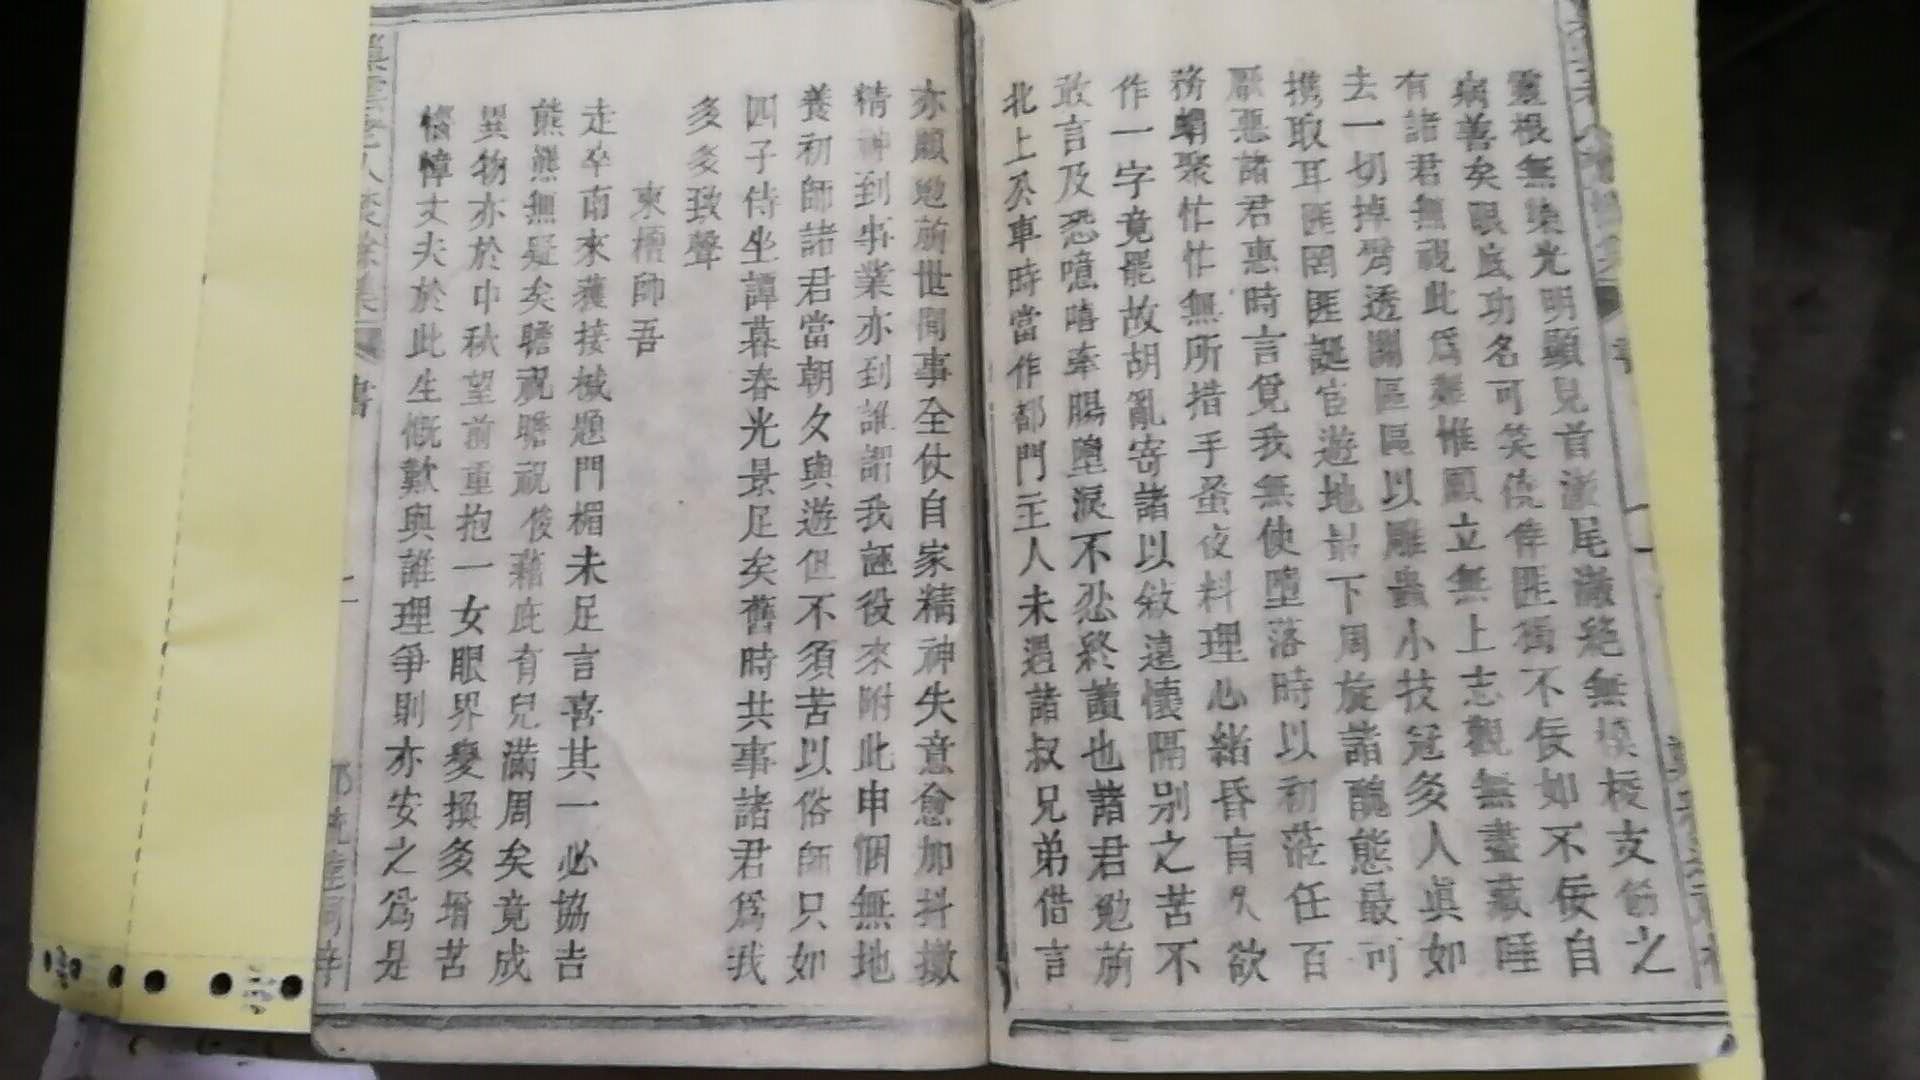 靈根無染光明顯見首澈尾澈絕無模稜支飾之
病善矣眼底功名可笑僥倖匪獨不佞如不佞自
有諸君無視此爲難惟願立無上志觀無盡藏唾
去一切掉臂透關區區以雕蟲小技冠多人眞如
攜取耳匪罔匪誕官遊地最下周旋諸醜態最可
厭惡諸君惠時言覓我無使墮落時以初蒞任百
務蝟聚忙忙無所措手蚤夜料理心緒昏盲久欲
作一字竟罷故胡亂寄諸以敘遠懷隔别之苦不
敢言及恐噫嘻牽腸墮淚不忍終讀也諸君勉旃
北上公車時當作都門主人未遇諸叔兄弟借言
亦願勉旃世間事全仗自家精神失意愈加抖擻
精神到事業亦到誰謂我誣役來附此申悃無地
養初師諸君當朝夕與遊但不須苦以俗師只如
四子侍坐譚暮春光景足矣舊時共事諸君爲我
多多致聲
東檀帥吾
走卒南來蕤接械題門楣未足言喜其一必協吉
熊熊無疑矣瞻視瞻視俊藉庇有兒滿周矣竟成
異物亦於中秋望前重抱一女眼界變換多增苦
惱幛丈夫於此生慨歎與誰理爭則亦安之爲是
書